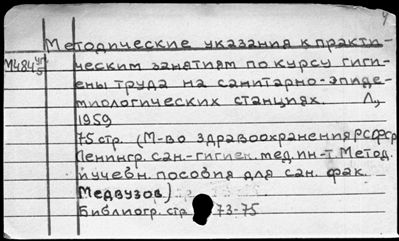 Методические указания к практи-
М484уп/5 ческим занятиям по курсу гиги-
ены труда на санитарно-эпиде-
миологических станциях. Л.,
1959
75 стр. (М-во здравоохранения РСФСР
Ленингр. сан.-гигиен. мед. ин-т. Метод.
и учебн. пособия для сан. фак.
Медвузов)
Библиогр. стр 73-75